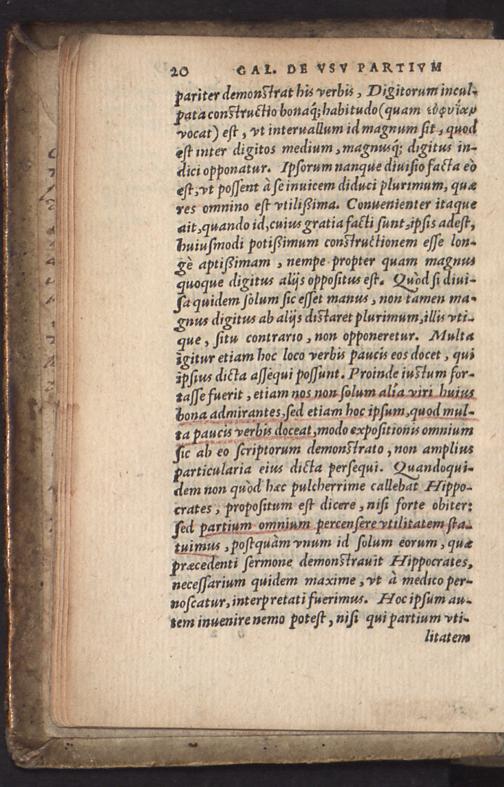 20 GAL. DE VSV PARTIVM
pariter demonstrat his verbis, Digitorum incul-
pata constructio bonaq; habitudo (quam εὐφυΐαν
vocat) est, vt interuallum id magnum sit, quod
est inter digitos medium, magnusq; digitus in-
dici opponatur. Ipsorum nanque diuisio facta eò
est, vt possent à se inuicem diduci plurimum, quæ
res omnino est vtilißima. Conuenienter itaque
ait, quando id, cuius gratia facti sunt, ipsis adest,
huiusmodi potißimum constructionem esse lon-
gè aptißimam, nempe propter quam magnus
quoque digitus alijs oppositus est. Quòd si diui-
sa quidem solum sic esset manus, non tamen ma-
gnus digitus ab alijs distaret plurimum, illis vti-
que, situ contrario, non opponeretur. Multa
igitur etiam hoc loco verbis paucis eos docet, qui
ipsius dicta assequi possunt. Proinde iustum for-
tasse fuerit, etiam nos non solum alia viri huius
bona admirantes, sed etiam hoc ipsum, quod mul-
ta paucis verbis doceat, modo expositionis omnium
sic ab eo scriptorum demonstrato, non amplius
particularia eius dicta persequi. Quandoqui-
dem non quòd hæc pulcherrime callebat Hippo-
crates, propositum est dicere, nisi forte obiter:
sed partium omnium percensere vtilitatem sta-
tuimus, postquàm vnum id solum eorum, quæ
præcedenti sermone demonstrauit Hippocrates,
necessarium quidem maxime, vt à medico per-
noscatur, interpretati fuerimus. Hoc ipsum au-
tem inuenire nemo potest, nisi qui partium vti-
litatem